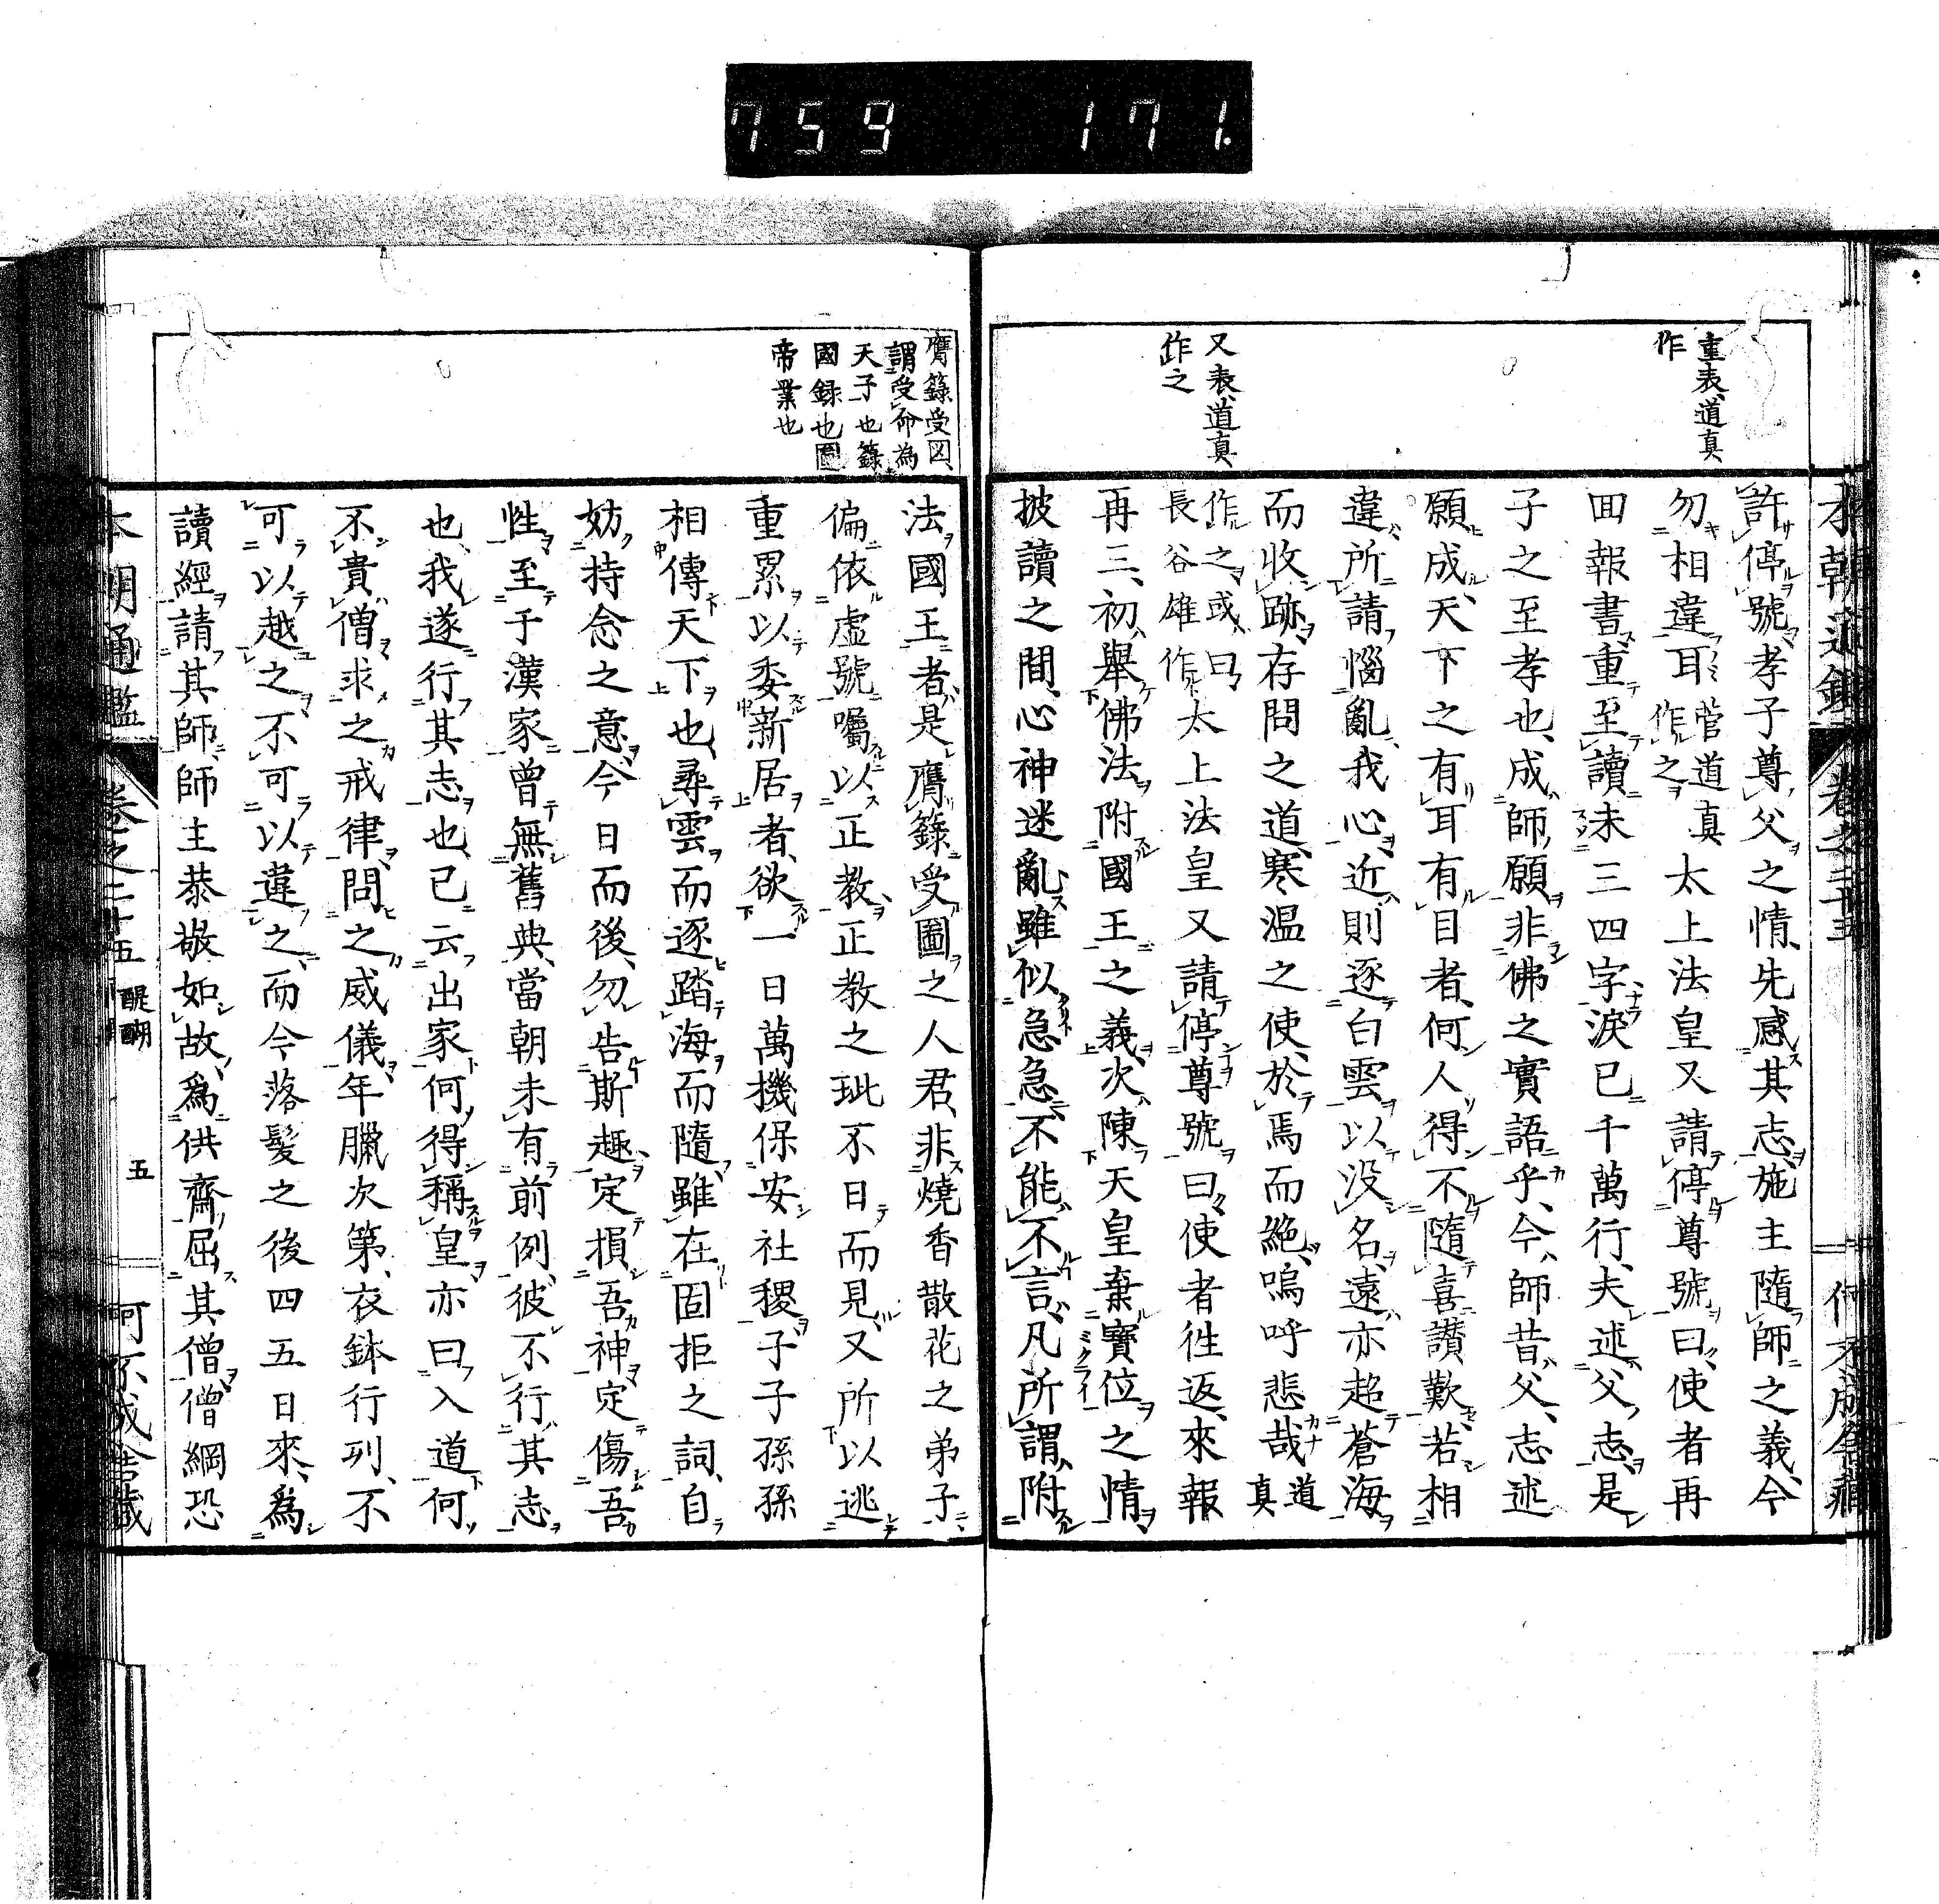 759 171.
本朝通鑑 卷之二十五
重表道真
作
又表道真
作之
許停號孝子尊父之情、先感其志、施主隨師之義、今
勿相違耳 菅道真作之 太上法皇又請停尊號曰、使者再
囬報書重至、讀未三四字、淚已千萬行、夫述父志、是
子之至孝也、成師願非佛之實語乎、今師昔父、志述
願成、天下之有耳有目者、何人得不隨喜讃歎、若相
違所請、惱亂我心、近則逐白雲以没名、遠亦超蒼海
而收跡、存問之道、寒温之使、於焉而絶、嗚呼悲哉 道真
作之、或曰長谷雄作 太上法皇又請停尊號曰、使者徃返、來報
再三、初舉佛法附國王之義、次陳天皇棄寶位之情、
披讀之間、心神迷亂、雖似急急、不能不言、凡所謂附
膺籙受圖、
謂受命為
天子也籙
國録也圖
帝業也
法國王者、是膺籙受圖之人君、非燒香散花之弟子、
偏依虚號、囑以正教、正教之玼、不日而見、又所以逃
重累、以委新居者、欲一日萬機保安社稷、子子孫孫
相傳天下也、尋雲而逐、踏海而隨、雖在固拒之詞、自
妨持念之意、今日而後、勿告斯趣、定損吾神、定傷吾
性、至于漢家、曾無舊典、當朝未有前例、彼不行其志
也、我遂行其志也、已云出家、何得稱皇、亦曰入道、何
不貴僧、求之戒律、問之威儀、年臈次第、衣鉢行列、不
可以越之、不可以違之、而今落髮之後四五日來、爲
讀經請其師、師主恭敬如故、爲供齋屈其僧、僧綱恐
本朝通鑑 卷之二十五 醍醐 五